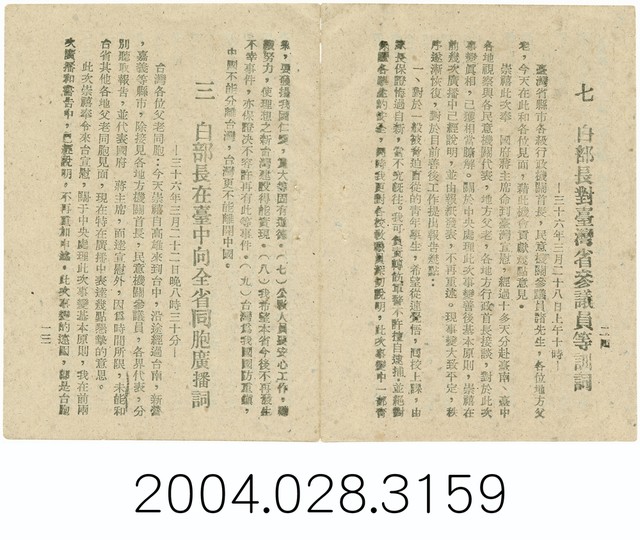 七 白部長對臺灣省參議員等訓詞
—三十六年三月二十八日上午十時—
臺灣省縣市各級行政機關首長,民意機關參議員諸先生,各位地方父
老,今天在此和各位見面,藉此機會貢獻幾點意見。
崇禧此次奉 國府蔣主席命到臺灣宣慰,經過十多天分赴臺南、臺中
各地視察與各民意機關代表,地方父老,各地方行政首長接談,對於此次
事變真相,已獲相當瞭解。關於中央處理此次事變善後基本原則,崇禧在
前幾次廣播中已經說明,並由報紙發表,不再重述。現事變大致平定,秩
序逐漸恢復,對於目前善後工作提出報告幾點:
一、對於一般被脅迫盲從的青年學生,希望從速覺悟,回校上課,由
家長保證悔過自新,當不究既往。我可負責轉飭軍警不許擅自逮捕。並絕對
保護各學生的安全,同時我更對各校教職員深切說明,此次事變中一部青
二四
，要發揚我國仁愛,寬大等固有道德。(七)公教人員要安心工作,繼
續努力,使理想之新台灣建設得能實現。(八)我希望本省今後不再發生
不幸事件,亦保證決不容許再有此等事件。(九)台灣為我國國防重鎮,
中國不能分離台灣,台灣更不能離開中國。
三 白部長在臺中向全省同胞廣播詞
—三十六年三月二十二日晚八時三十分—
台灣各位父老同胞,今天崇禧自高雄來到台中,沿途經過台南,新營
,嘉義等縣市,除接見各地方機關首長,民意機關參議員,各界代表,分
別聽取報告,並代表國府 蔣主席,而達宣慰外,因為時間所限,未能和
台省其他各地父老同胞見面,現在特在廣播中表達幾點懇摯的意思。
此次崇禧奉令來台宣慰,關于中央處理此次事變基本原則,我在前兩
次廣播和書告中,已經說明,不再重和申述。此次事變的遠因,卻是台胞
二三
2004.028.3159